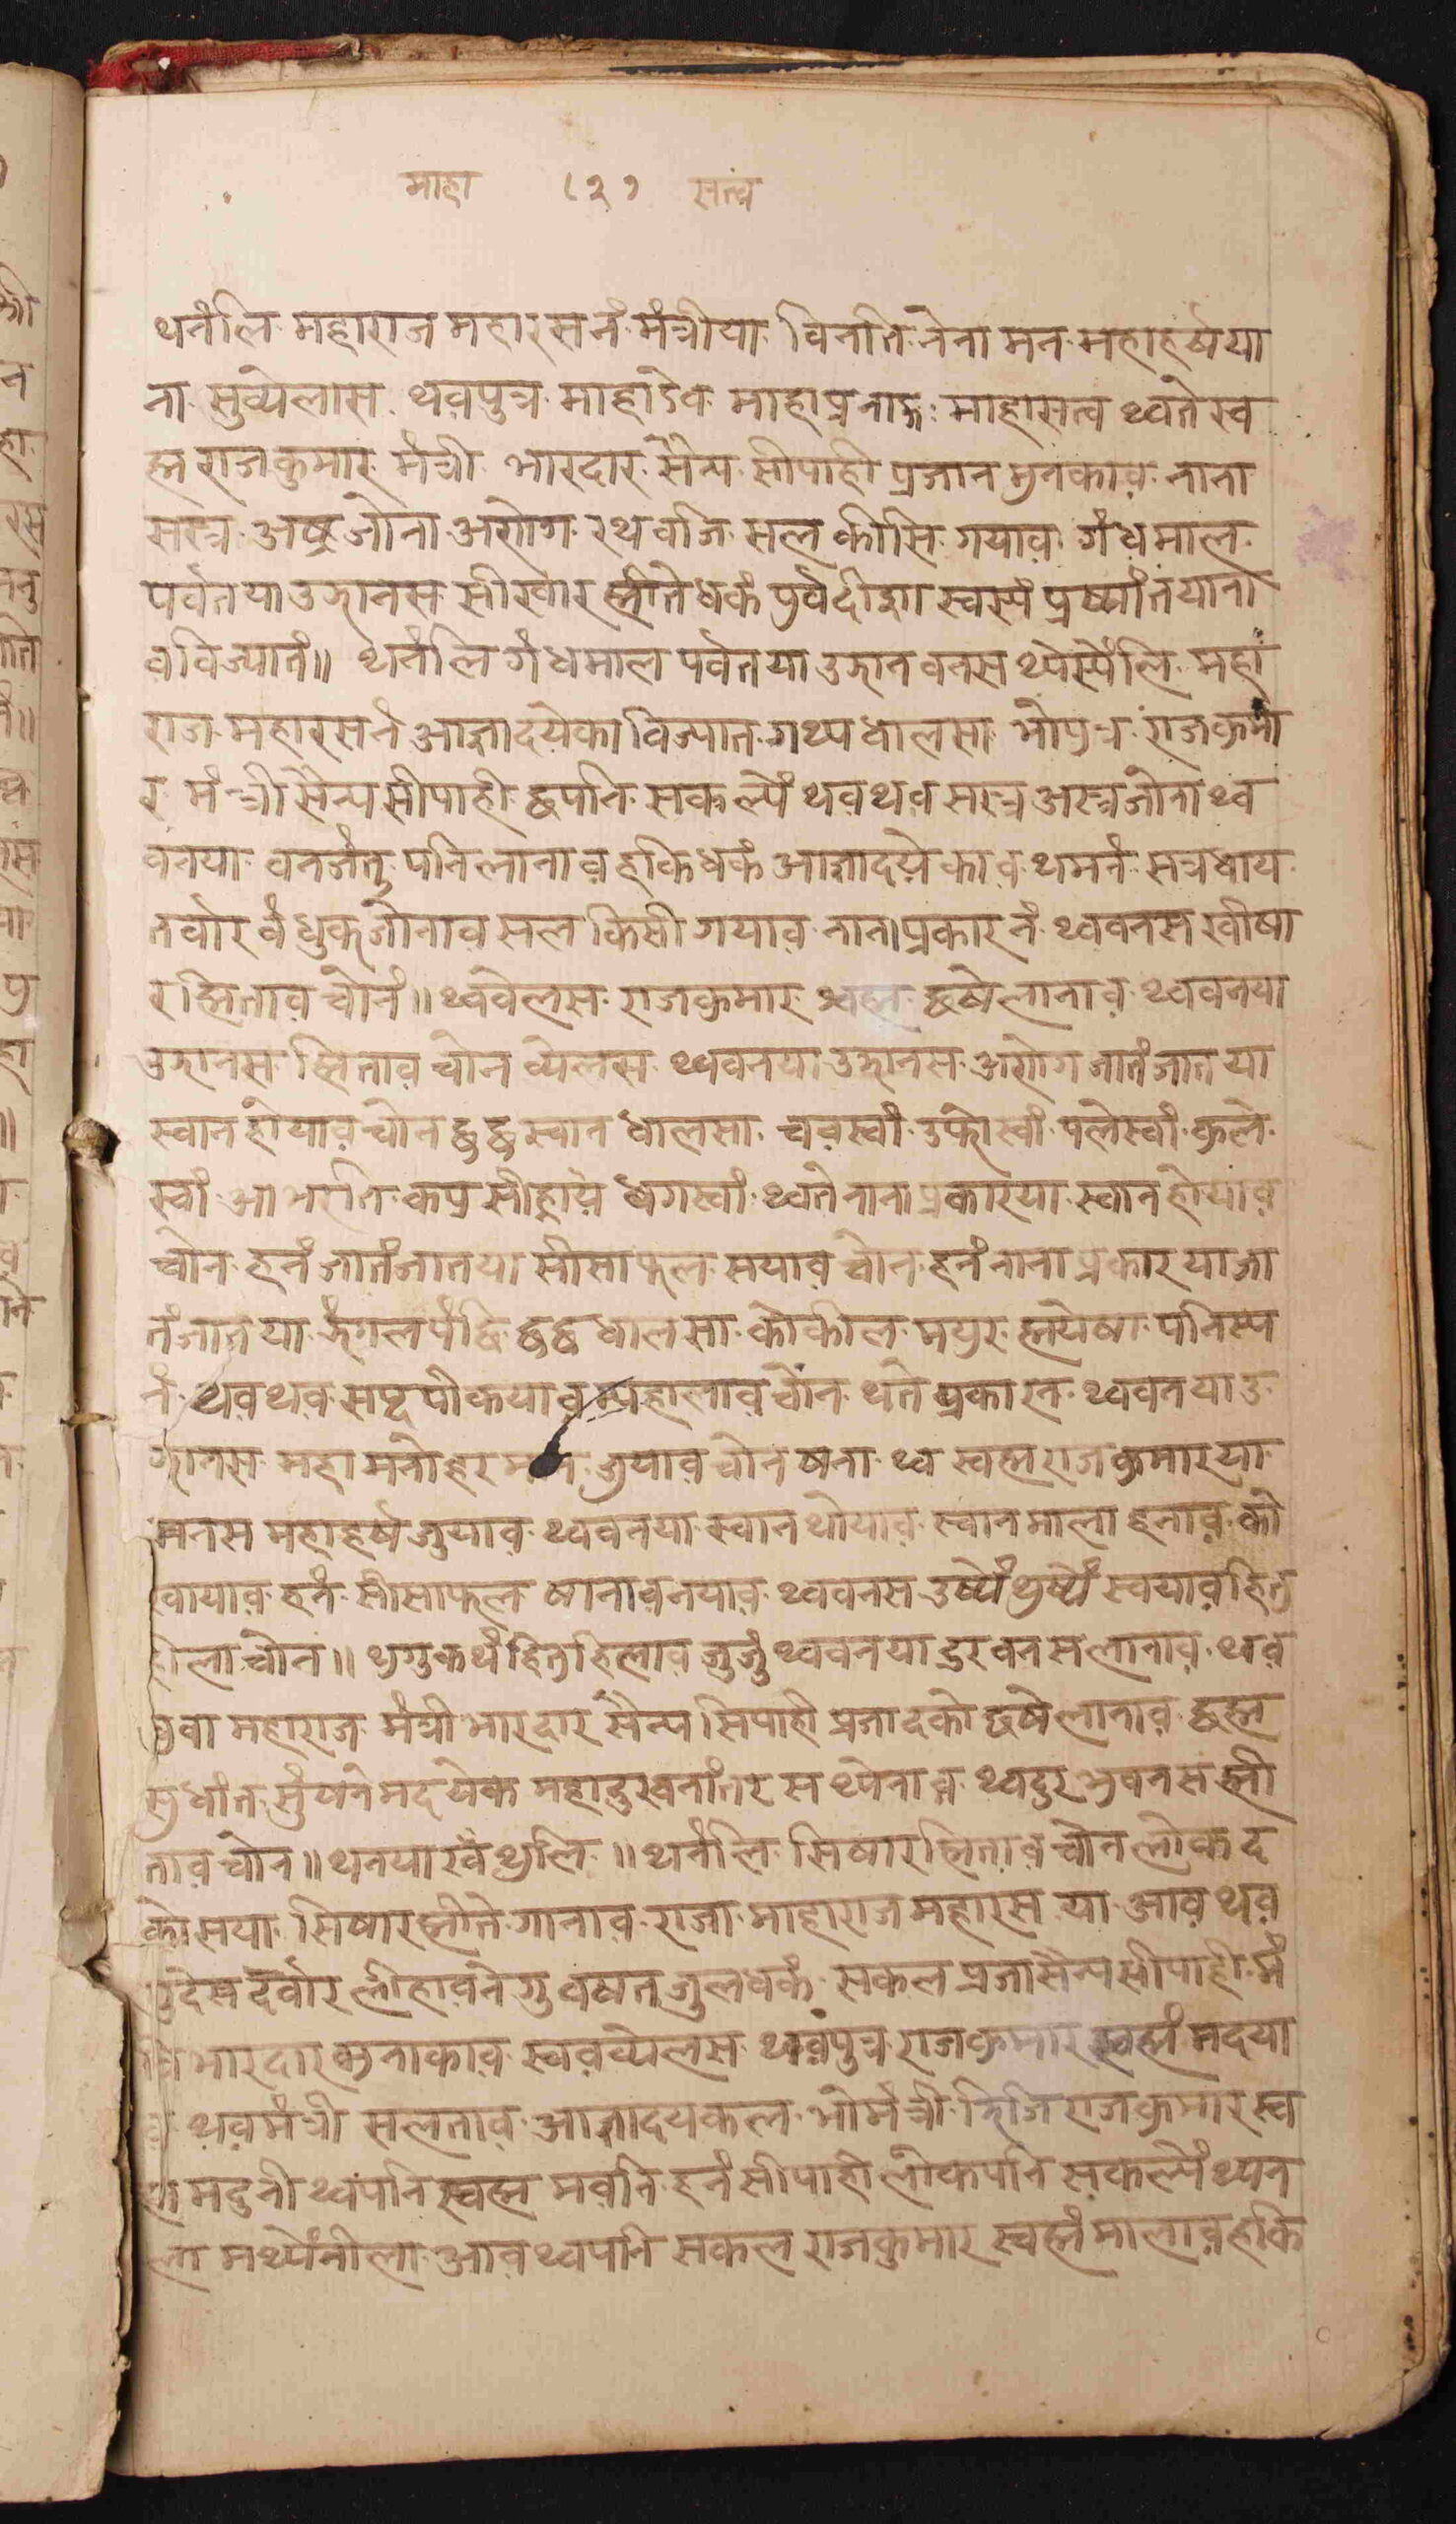 माहा ८२१ सत्व
थनंलि महाराज महारसनं मंत्रीया विनति नेना मन महाहर्षया
ना सुव्येलास थवपुत्र माहाडेव माहाप्रनाड़ माहासत्व थ्वते स्व
ह्म राजकुमार मंत्री भारदार सैन्य सीपाही प्रजान मुनकाव नाना
सस्त्र अष्त्र जोना अरोग रथ वजि सल कीसि गयाव गंधमाल
पर्वतया उद्यानस सीखार ह्मीते धकं पुर्वदीशा स्वस्यं प्रष्थांतयाना
व विज्यातं॥ थनंलि गंधमाल पर्वतया उद्यान वनस थ्येस्येंलि महा
राज महारसनं आज्ञादयेका विज्यात गथ्य धालसा भोपुत्र राजकुमा
र मंत्री सैन्य सीपाही छपनि सकल्यें थवथव सास्त्र अस्त्र जोना थ्व
वनया वनजंतु पनि लानाव हकि धकं आज्ञादयेकाव थमनं सत्र धाय
तर्वार वंधुक जोनाव सल किसी गयाव नानाप्रकारनं थ्ववनस खीषा
र ह्मिताव चोनं॥ थ्ववेलस राजकुमार श्वह्म छषे लानाव थ्ववनया
उद्यानस ह्मिताव चोन व्येलस थ्ववनया उद्यानस अरोग जातंजातया
स्वान होयाव चोन छुछु स्वान धालसा चवस्वां उफोस्वां पलेस्वां
स्वां थ्वते नानाप्रकारया स्वान होयाव
चोन हनं जातंजातया सीसाफल सयाव चोन हनं नानाप्रकारया जा
तंजातया झंगल पंछि छुछु धालसा कोकील मयुर ह्मयेषा पनिस्य
नं थवथव सष्द पीकयाव हालाव चोन थ्वते प्रकारन थ्ववनया उ
द्यानस महा मनोहर जुयाव चोन षना थ्व स्वह्म राजकुमारया
मनस महाहर्ष जुयाव थ्ववनया स्वान थोयाव स्वानमाला हनाव को
खायाव हनं सीसाफल षानाव नयाव थ्ववनस उष्यें थुष्यें स्वयाव हितु
हीला चोन॥ थुगुकथं हितुहिलाव जुजुं थ्ववनया दुर वनस लानाव थव
वुवा महाराज मंत्री भारदार सैन्य सिपाही प्रजा दको छषे लानाव छह्म
सुधांत सुं षने मदयेक महादुखनांतरे स थ्येनाव थ्वदुर भुवनस ह्मी
ताव चोन॥ थनया खं थुलि॥ थनंलि सिषार ह्मिताव चोन लोक द
कोसया सिषार ह्मीते गानाव राजा माहाराज महारस या आव थव
देस दर्वार लीहावने गु वषत जुल धकं सकल प्रजा सैन्य सीपाही मं
त्रि भारदार मुनाकाव स्वव व्येलस थवपुत्र राजकुमार स्वह्मं मदया
व थवमंत्री सलताव आज्ञादयकल भो मंत्री जिजि राजकुमार स्व
ह्म मदुनी थ्वपनि स्वह्म मवनि हनं सीपाही लोकपनि सकल्यें थ्यन
ला मथ्येंनीला आव थ्वपनि सकल राजकुमार स्वह्मं मालाव हकि